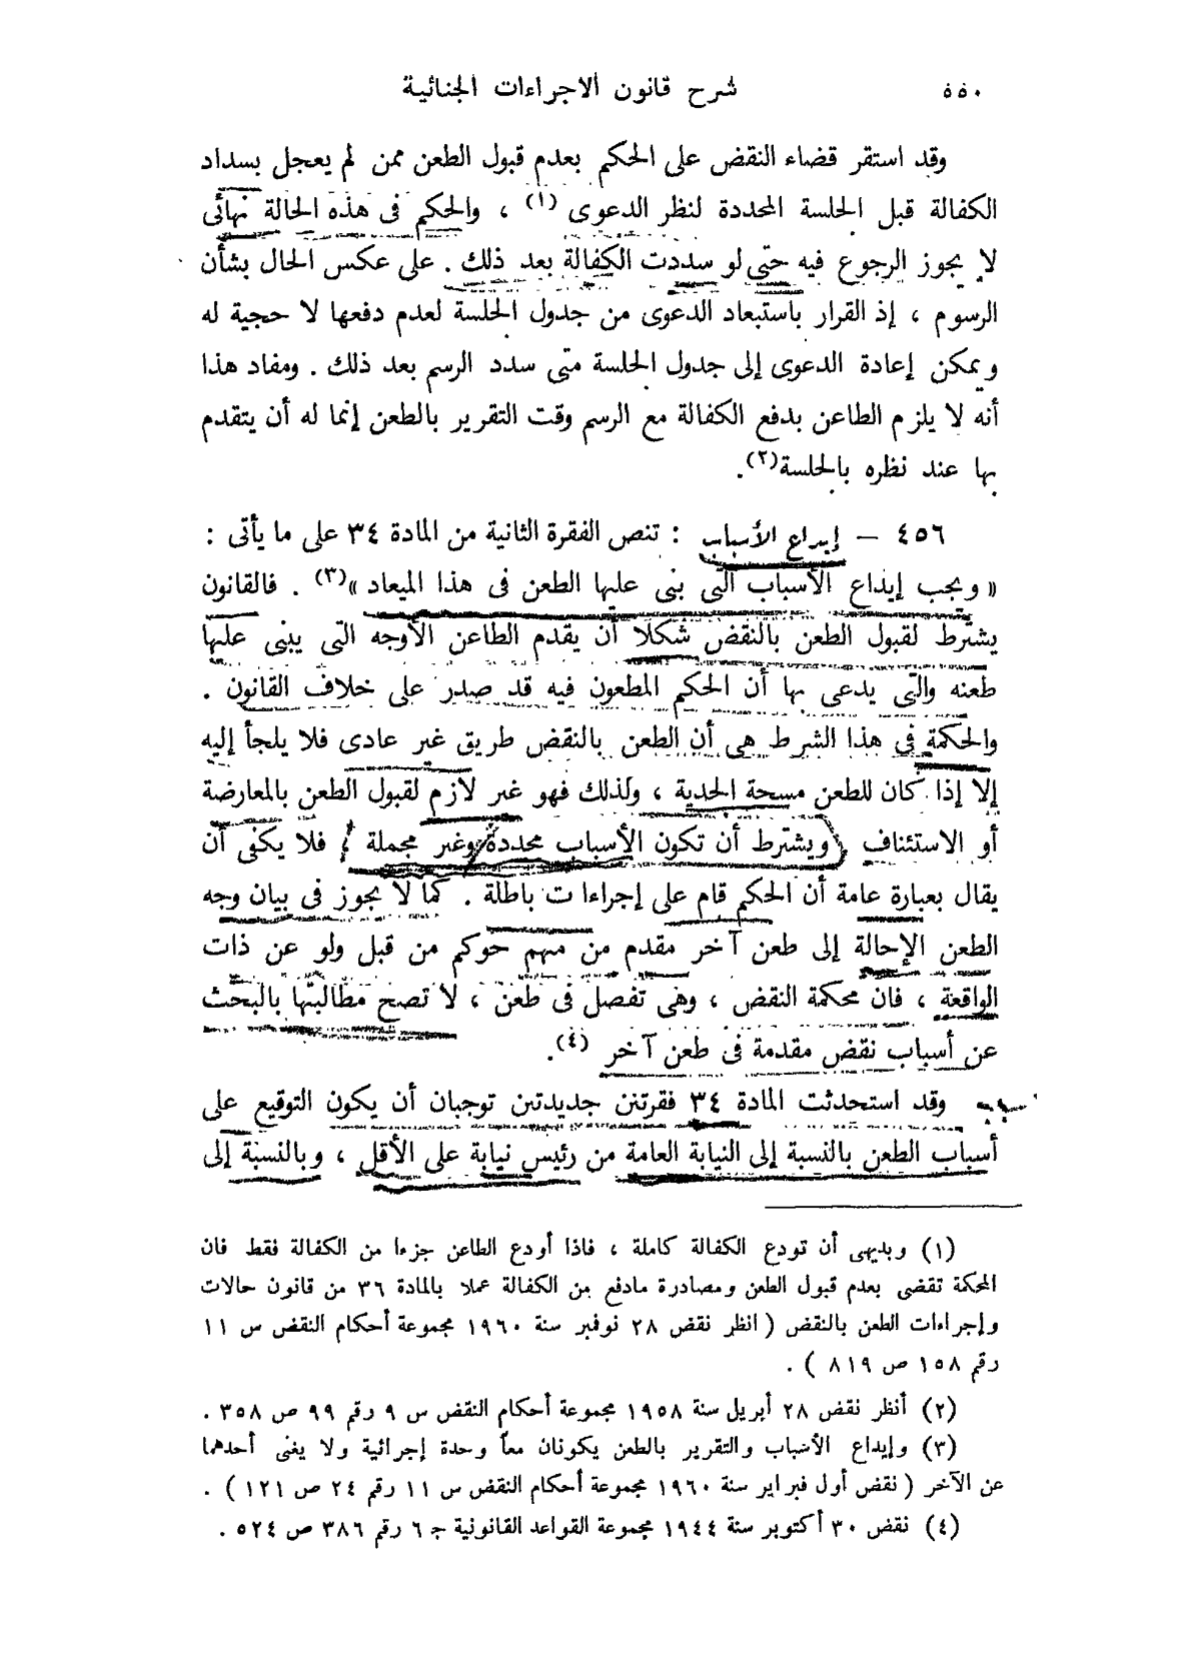 ٥٥٠
شرح قانون الاجراءات الجنائية
وقد استقر قضاء النقض على الحكم بعدم قبول الطعن ممن لم يعجل بسداد
الكفالة قبل الجلسة المحددة لنظر الدعوى (١) ، والحكم فى هذه الحالة نهائى
لا يجوز الرجوع فيه حتى لو سددت الكفالة بعد ذلك . على عكس الحال بشأن
الرسوم ، إذ القرار باستبعاد الدعوى من جدول الجلسة لعدم دفعها لا حجية له
ويمكن إعادة الدعوى إلى جدول الجلسة متى سدد الرسم بعد ذلك . ومفاد هذا
أنه لا يلزم الطاعن بدفع الكفالة مع الرسم وقت التقرير بالطعن إنما له أن يتقدم
بها عند نظره بالجلسة(٢).
٤٥٦ – إيداع الأسباب : تنص الفقرة الثانية من المادة ٣٤ على ما يأتى :
« ويجب إيداع الأسباب التى بنى عليها الطعن فى هذا الميعاد »(٣) . فالقانون
يشترط لقبول الطعن بالنقض شكلا أن يقدم الطاعن الأوجه التى يبنى عليها
طعنه والتى يدعى بها أن الحكم المطعون فيه قد صدر على خلاف القانون .
والحكمة فى هذا الشرط هى أن الطعن بالنقض طريق غير عادى فلا يلجأ إليه
إلا إذا كان للطعن مسحة الجدية ، ولذلك فهو غير لازم لقبول الطعن بالمعارضة
أو الاستئناف . ويشترط أن تكون الأسباب محددة وغير مجملة ، فلا يكفى أن
يقال بعبارة عامة أن الحكم قام على إجراءات باطلة . كما لا يجوز فى بيان وجه
الطعن الإحالة إلى طعن آخر مقدم من متهم حوكم من قبل ولو عن ذات
الواقعة ، فان محكمة النقض ، وهى تفصل فى طعن ، لا تصح مطالبتها بالبحث
عن أسباب نقض مقدمة فى طعن آخر (٤).
وقد استحدثت المادة ٣٤ فقرتين جديدتين توجبان أن يكون التوقيع على
أسباب الطعن بالنسبة إلى النيابة العامة من رئيس نيابة على الأقل ، وبالنسبة إلى
(١) وبديهى أن تودع الكفالة كاملة ، فاذا أودع الطاعن جزءا من الكفالة فقط فان
المحكمة تقضى بعدم قبول الطعن ومصادرة مادفع من الكفالة عملا بالمادة ٣٦ من قانون حالات
وإجراءات الطعن بالنقض ( انظر نقض ٢٨ نوفمبر سنة ١٩٦٠ مجموعة أحكام النقض س ١١
رقم ١٥٨ ص ٨١٩ ) .
(٢) أنظر نقض ٢٨ أبريل سنة ١٩٥٨ مجموعة أحكام النقض س ٩ رقم ٩٩ ص ٣٥٨ .
(٣) وإيداع الأسباب والتقرير بالطعن يكونان معاً وحدة إجرائية ولا يغنى أحدهما
عن الآخر ( نقض أول فبراير سنة ١٩٦٠ مجموعة أحكام النقض س ١١ رقم ٢٤ ص ١٢١ ) .
(٤) نقض ٣٠ أكتوبر سنة ١٩٤٤ مجموعة القواعد القانونية ج ٦ رقم ٣٨٦ ص ٥٢٤ .